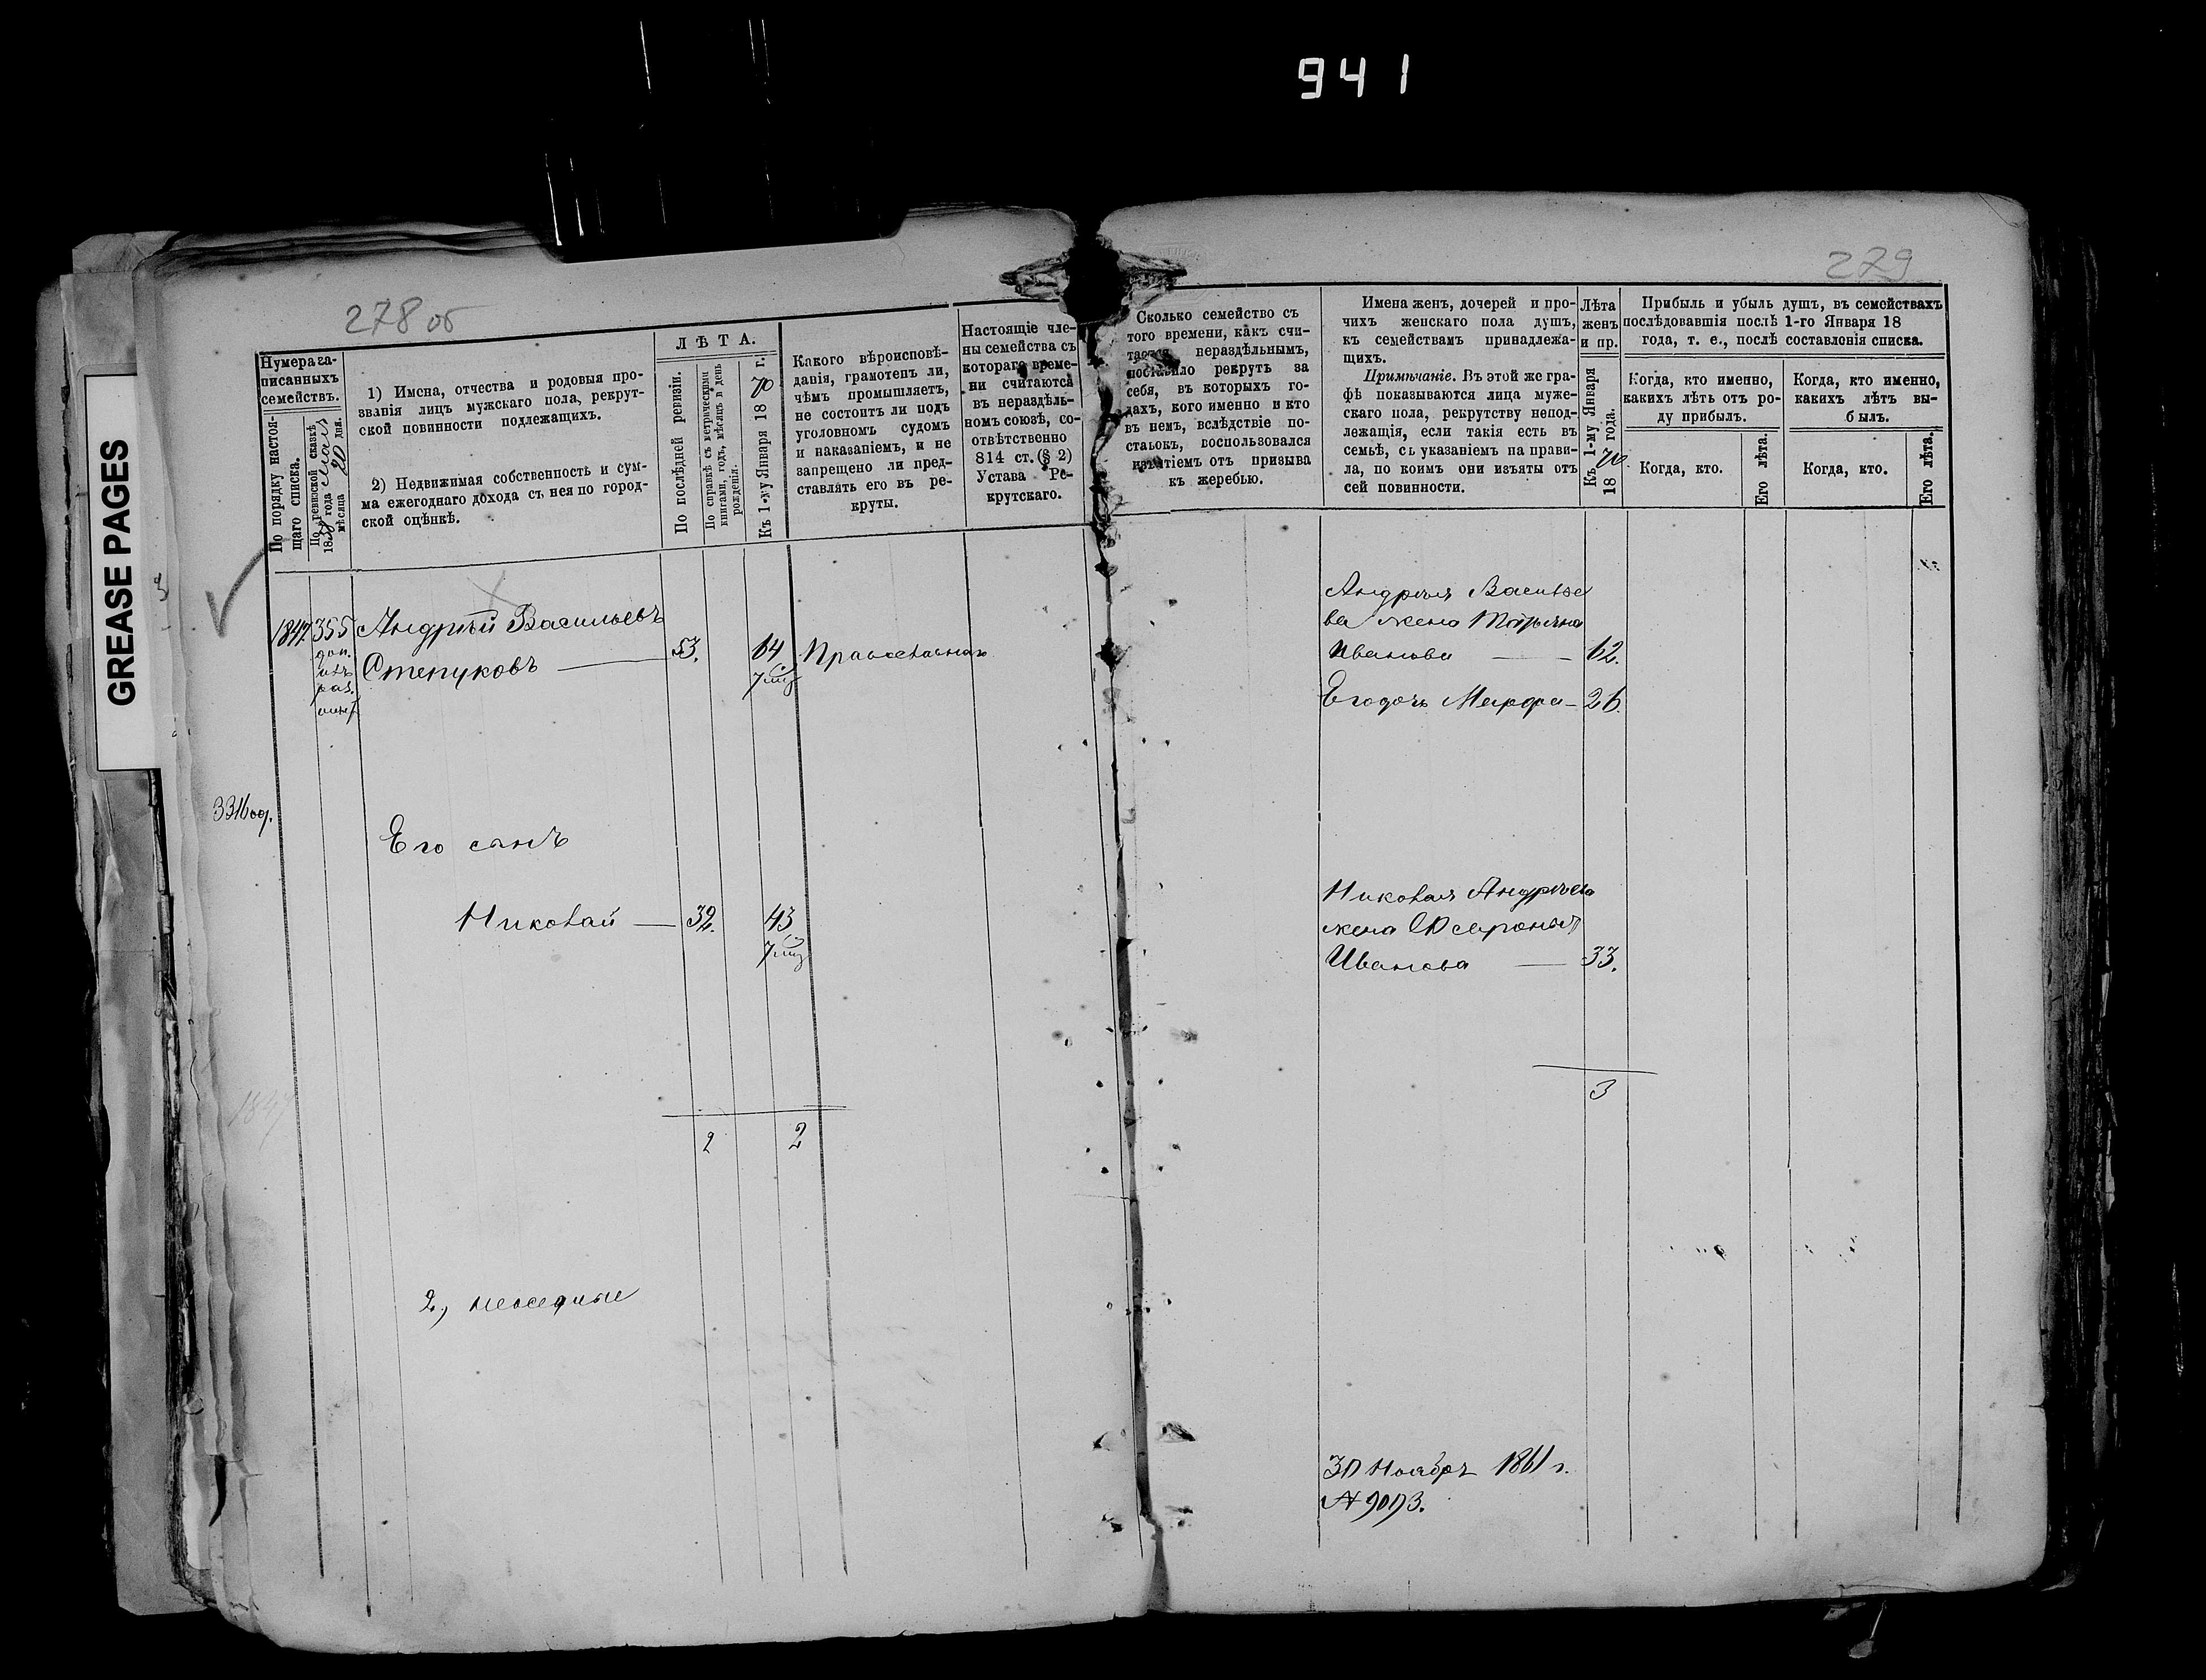 941
GREASE PAGES
278 об
Нумера за-
писанныхъ
семействъ.
По порядку настоя-
щаго списка.
По ревизской сказкѣ
1858 года
мѣсяца 20 дня.
1) Имена, отчества и родовыя про-
званія лицъ мужскаго пола, рекрут-
ской повинности подлежащихъ.
2) Недвижимая собственность и сум-
ма ежегоднаго дохода съ нея по город-
ской оцѣнкѣ.
ЛѢТА.
По послѣдней ревизіи.
По справкѣ съ метрическими
книгами, годъ, мѣсяцъ и день
рожденія.
Къ 1-му Января 1870 г.
Какого вѣроисповѣ-
данія, грамотенъ ли,
чѣмъ промышляетъ,
не состоитъ ли подъ
уголовномъ судомъ
и наказаніемъ, и не
запрещено ли пред-
ставлять его въ ре-
круты.
Настоящіе чле-
ны семейства съ
котораго време-
ни считаются
въ нераздѣль-
номъ союзѣ, со-
отвѣтственно
814 ст. (§ 2)
Устава Ре-
крутскаго.
1847 355 Андрѣй Васильевъ
доп. Степуковъ — 53. 64 Православнаго
изъ
раз. 7 мѣ
3316 об.
Его сынъ
Николай — 32. 43
7 мѣ
1847
2 2
2,
279
Сколько семейство съ
того времени, какъ счи-
тается нераздѣльнымъ,
поставило рекрутъ за
себя, въ которыхъ го-
дахъ, кого именно и кто
въ немъ, вслѣдствіе по-
стаьокъ, воспользовался
изъятіемъ отъ призыва
къ жеребью.
Имена женъ, дочерей и про-
чихъ женскаго пола душъ,
къ семействамъ принадлежа-
щихъ.
Примѣчаніе. Въ этой же гра-
фѣ показываются лица муже-
скаго пола, рекрутству непод-
лежащія, если такія есть въ
семьѣ, съ указаніемъ на прави-
ла, по коимъ они изъяты отъ
сей повинности.
Лѣта
женъ
и пр.
Къ 1-му Января
1870 года.
Прибыль и убыль душъ, въ семействахъ
послѣдовавшія послѣ 1-го Января 18
года, т. е., послѣ составленія списка.
Когда, кто именно,
какихъ лѣтъ отъ ро-
ду прибылъ.
Когда, кто.
Его лѣта.
Когда, кто именно,
какихъ лѣтъ вы-
былъ.
Когда, кто.
Его лѣта.
Андрѣя Василье
ва жена Татьяна
Иванова — 62.
Его дочь Марфа — 26.
Николая Андрѣева
жена
Иванова — 33.
3
30 Ноября 1861 г.
№ 9093.